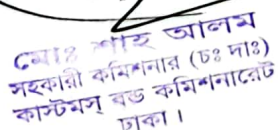 মোঃ শাহ আলম
সহকারী কমিশনার (চঃ দাঃ)
কাস্টমস্ বন্ড কমিশনারেট
ঢাকা।